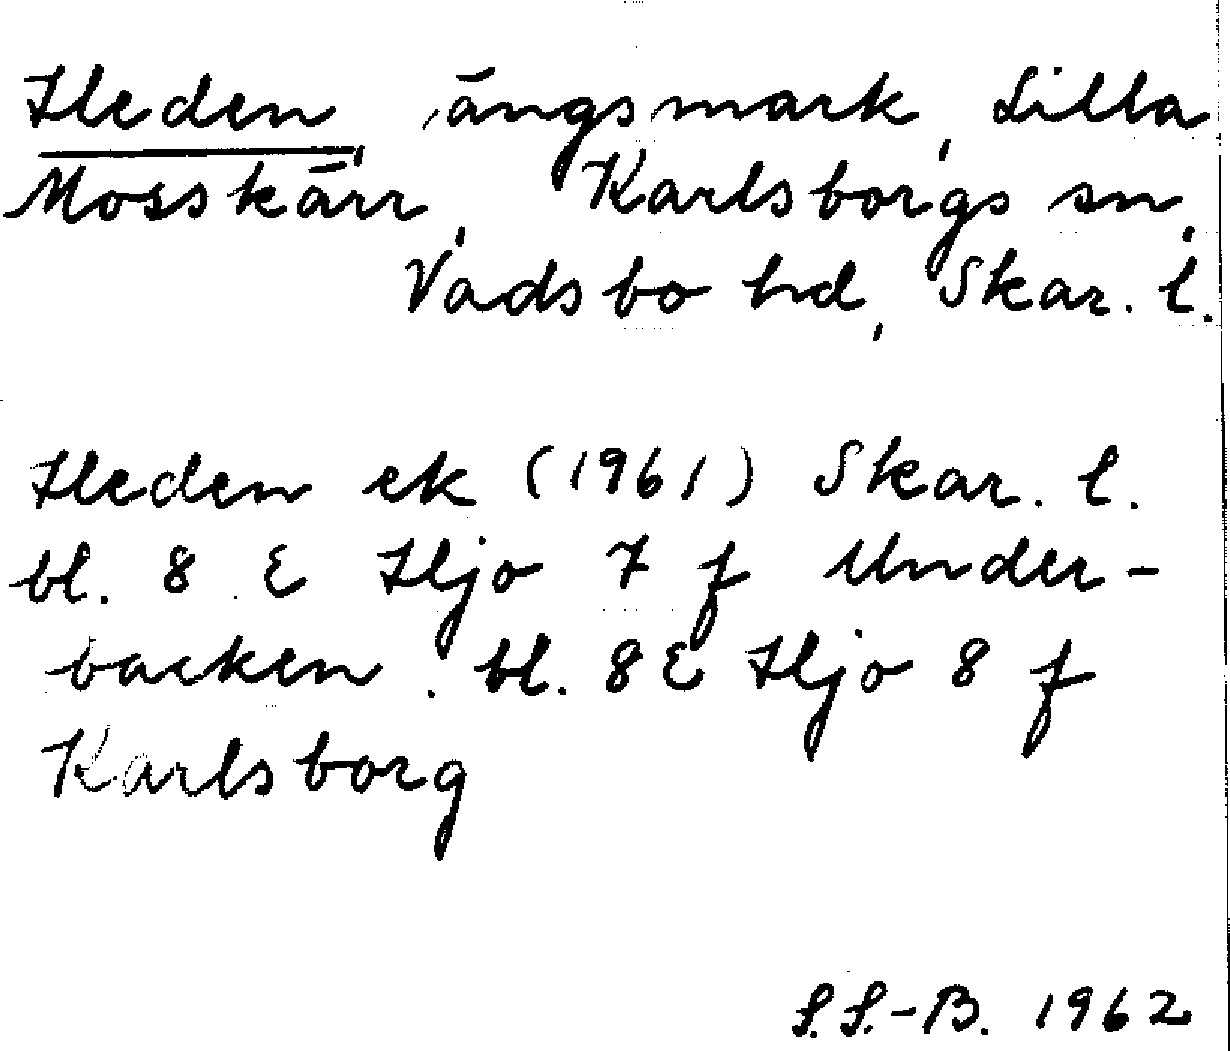 Heden, ängsmark, Lilla
Mosskärr, Karlsborgs sn,
Vadsbo hd, Skar. l.
Heden ek (1961) Skar. l.
bl. 8 E Hjo 7 f Under-
backen. bl. 8 E Hjo 8 f
Karlsborg
S.S.-B. 1962